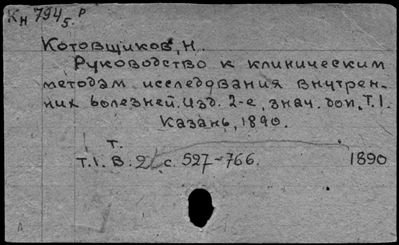 Кн 794/5 Р
Котовщиков, Н.
Руководство к клиническим
методам исследования внутрен-
них болезней. Изд. 2-е, знач. доп. Т. I.
Казань, 1890.
Т.
Т. I. В. 2. с. 527-766. 1890